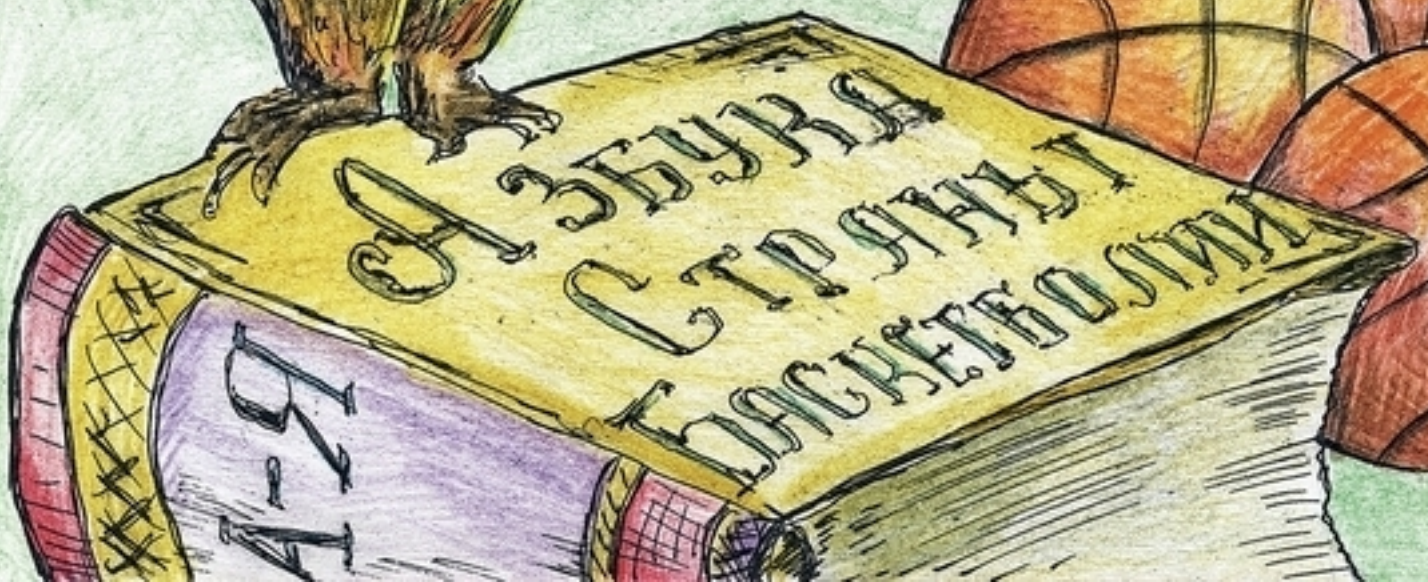 АЗБУКА
СТРАНЫ
БАСКЕТБОЛИИ
А-Я